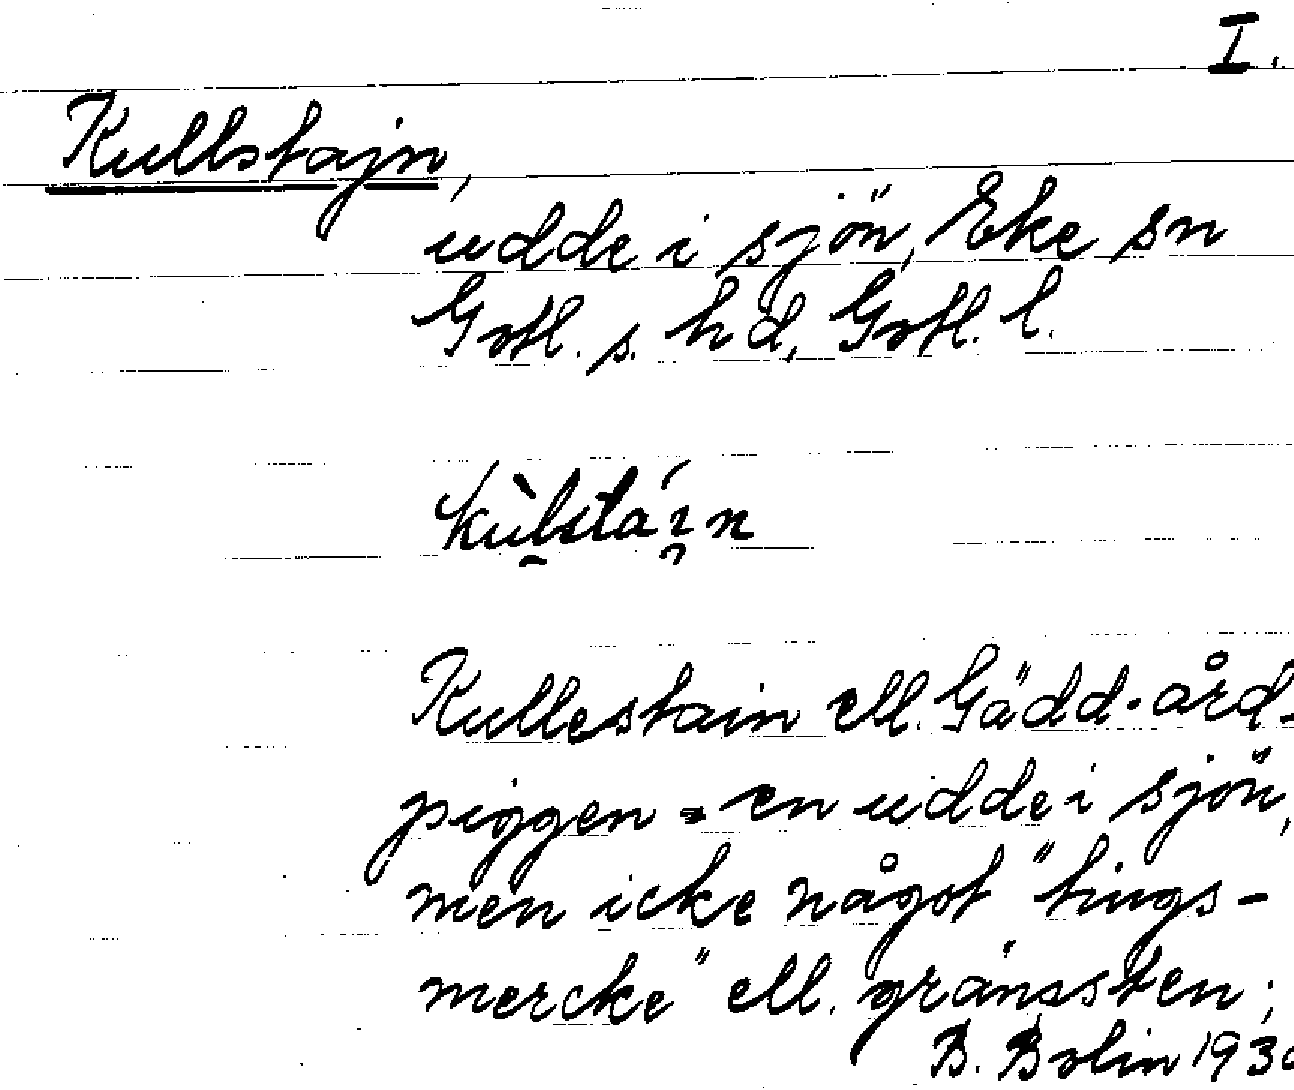 I.
Kullstajn,
udde i sjön, Eke sn
Gotl. s. hd, Gotl. l.
Kullestain ell. Gädd-ård-
piggen = en udde i sjön,
men icke något "tings-
mercke" ell. gränssten;
B. Bolin 193